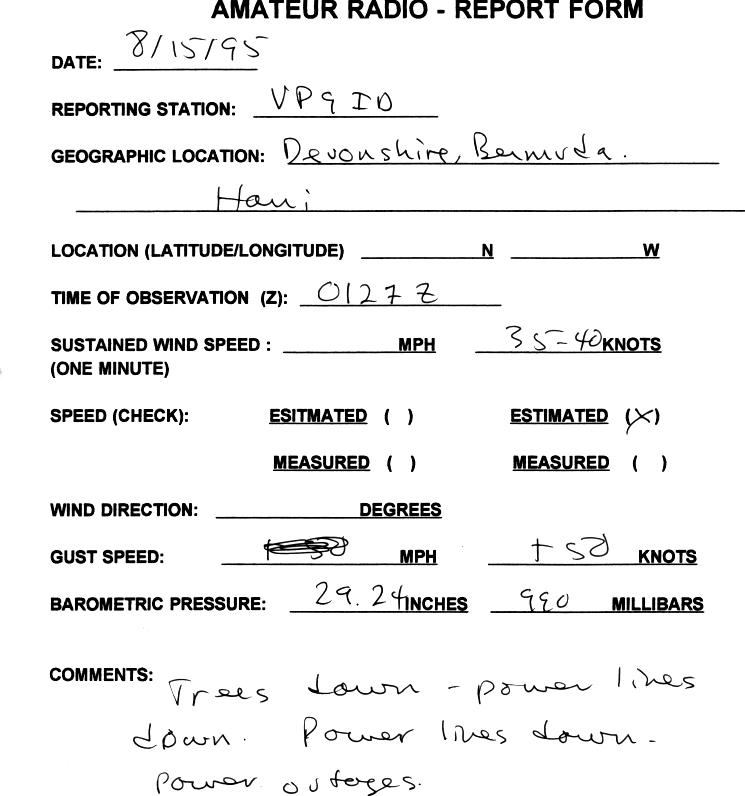 AMATEUR RADIO - REPORT FORM
DATE: 8/15/95
REPORTING STATION: VP9ID
GEOGRAPHIC LOCATION: Devonshire, Bermuda.
LOCATION (LATITUDE/LONGITUDE) N W
TIME OF OBSERVATION (Z): 0127 Z
SUSTAINED WIND SPEED : MPH 35-40 KNOTS
(ONE MINUTE)
SPEED (CHECK): ESITMATED ( ) ESTIMATED (X)
MEASURED ( ) MEASURED ( )
WIND DIRECTION: DEGREES
GUST SPEED: MPH + 50 KNOTS
BAROMETRIC PRESSURE: 29.24 INCHES 990 MILLIBARS
COMMENTS: Trees down - power lines
down. Power lines down -
power outages.